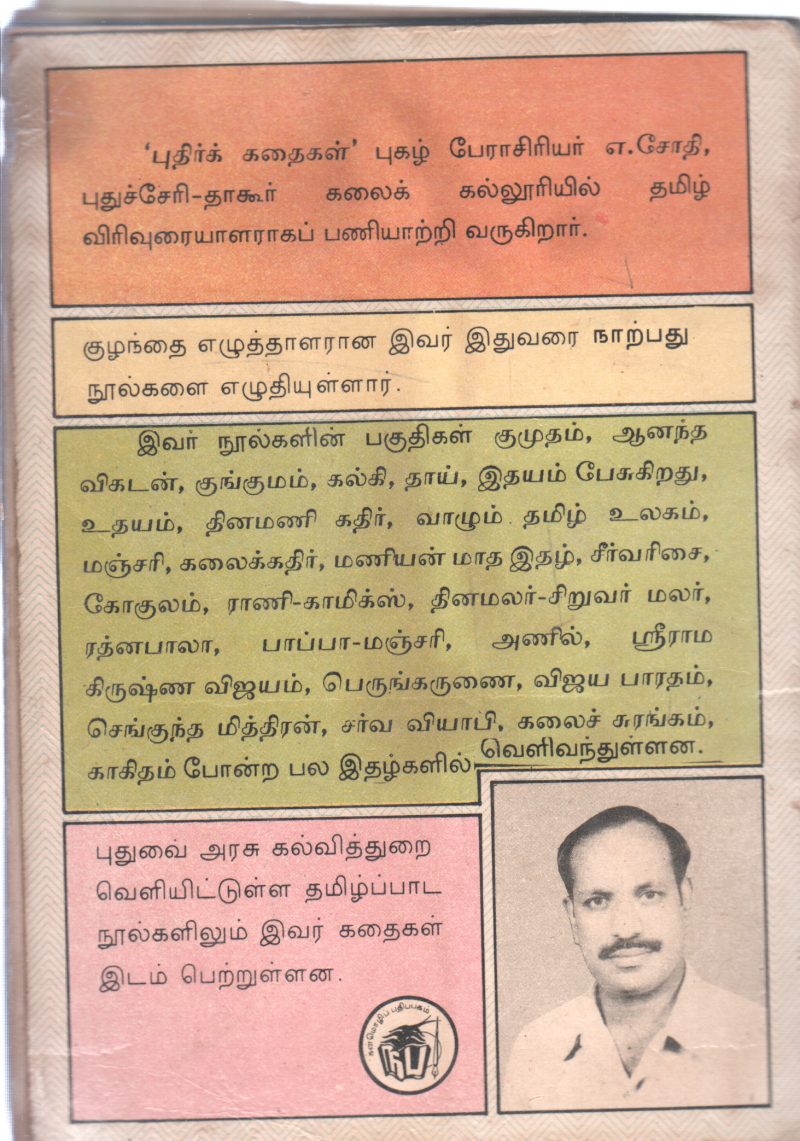 ‘புதிர்க் கதைகள்’ புகழ் பேராசிரியர் எ.சோதி,
புதுச்சேரி-தாகூர் கலைக் கல்லூரியில் தமிழ்
விரிவுரையாளராகப் பணியாற்றி வருகிறார்.
குழந்தை எழுத்தாளரான இவர் இதுவரை நாற்பது
நூல்களை எழுதியுள்ளார்.
இவர் நூல்களின் பகுதிகள் குமுதம், ஆனந்த
விகடன், குங்குமம், கல்கி, தாய், இதயம் பேசுகிறது,
உதயம், தினமணி கதிர், வாழும் தமிழ் உலகம்,
மஞ்சரி, கலைக்கதிர், மணியன் மாத இதழ், சீர்வரிசை,
கோகுலம், ராணி-காமிக்ஸ், தினமலர்-சிறுவர் மலர்,
ரத்னபாலா, பாப்பா-மஞ்சரி, அணில், ஸ்ரீராம
கிருஷ்ண விஜயம், பெருங்கருணை, விஜய பாரதம்,
செங்குந்த மித்திரன், சர்வ வியாபி, கலைச் சுரங்கம்,
காகிதம் போன்ற பல இதழ்களில் வெளிவந்துள்ளன.
புதுவை அரசு கல்வித்துறை
வெளியிட்டுள்ள தமிழ்ப்பாட
நூல்களிலும் இவர் கதைகள்
இடம் பெற்றுள்ளன.
பதிப்பகம்